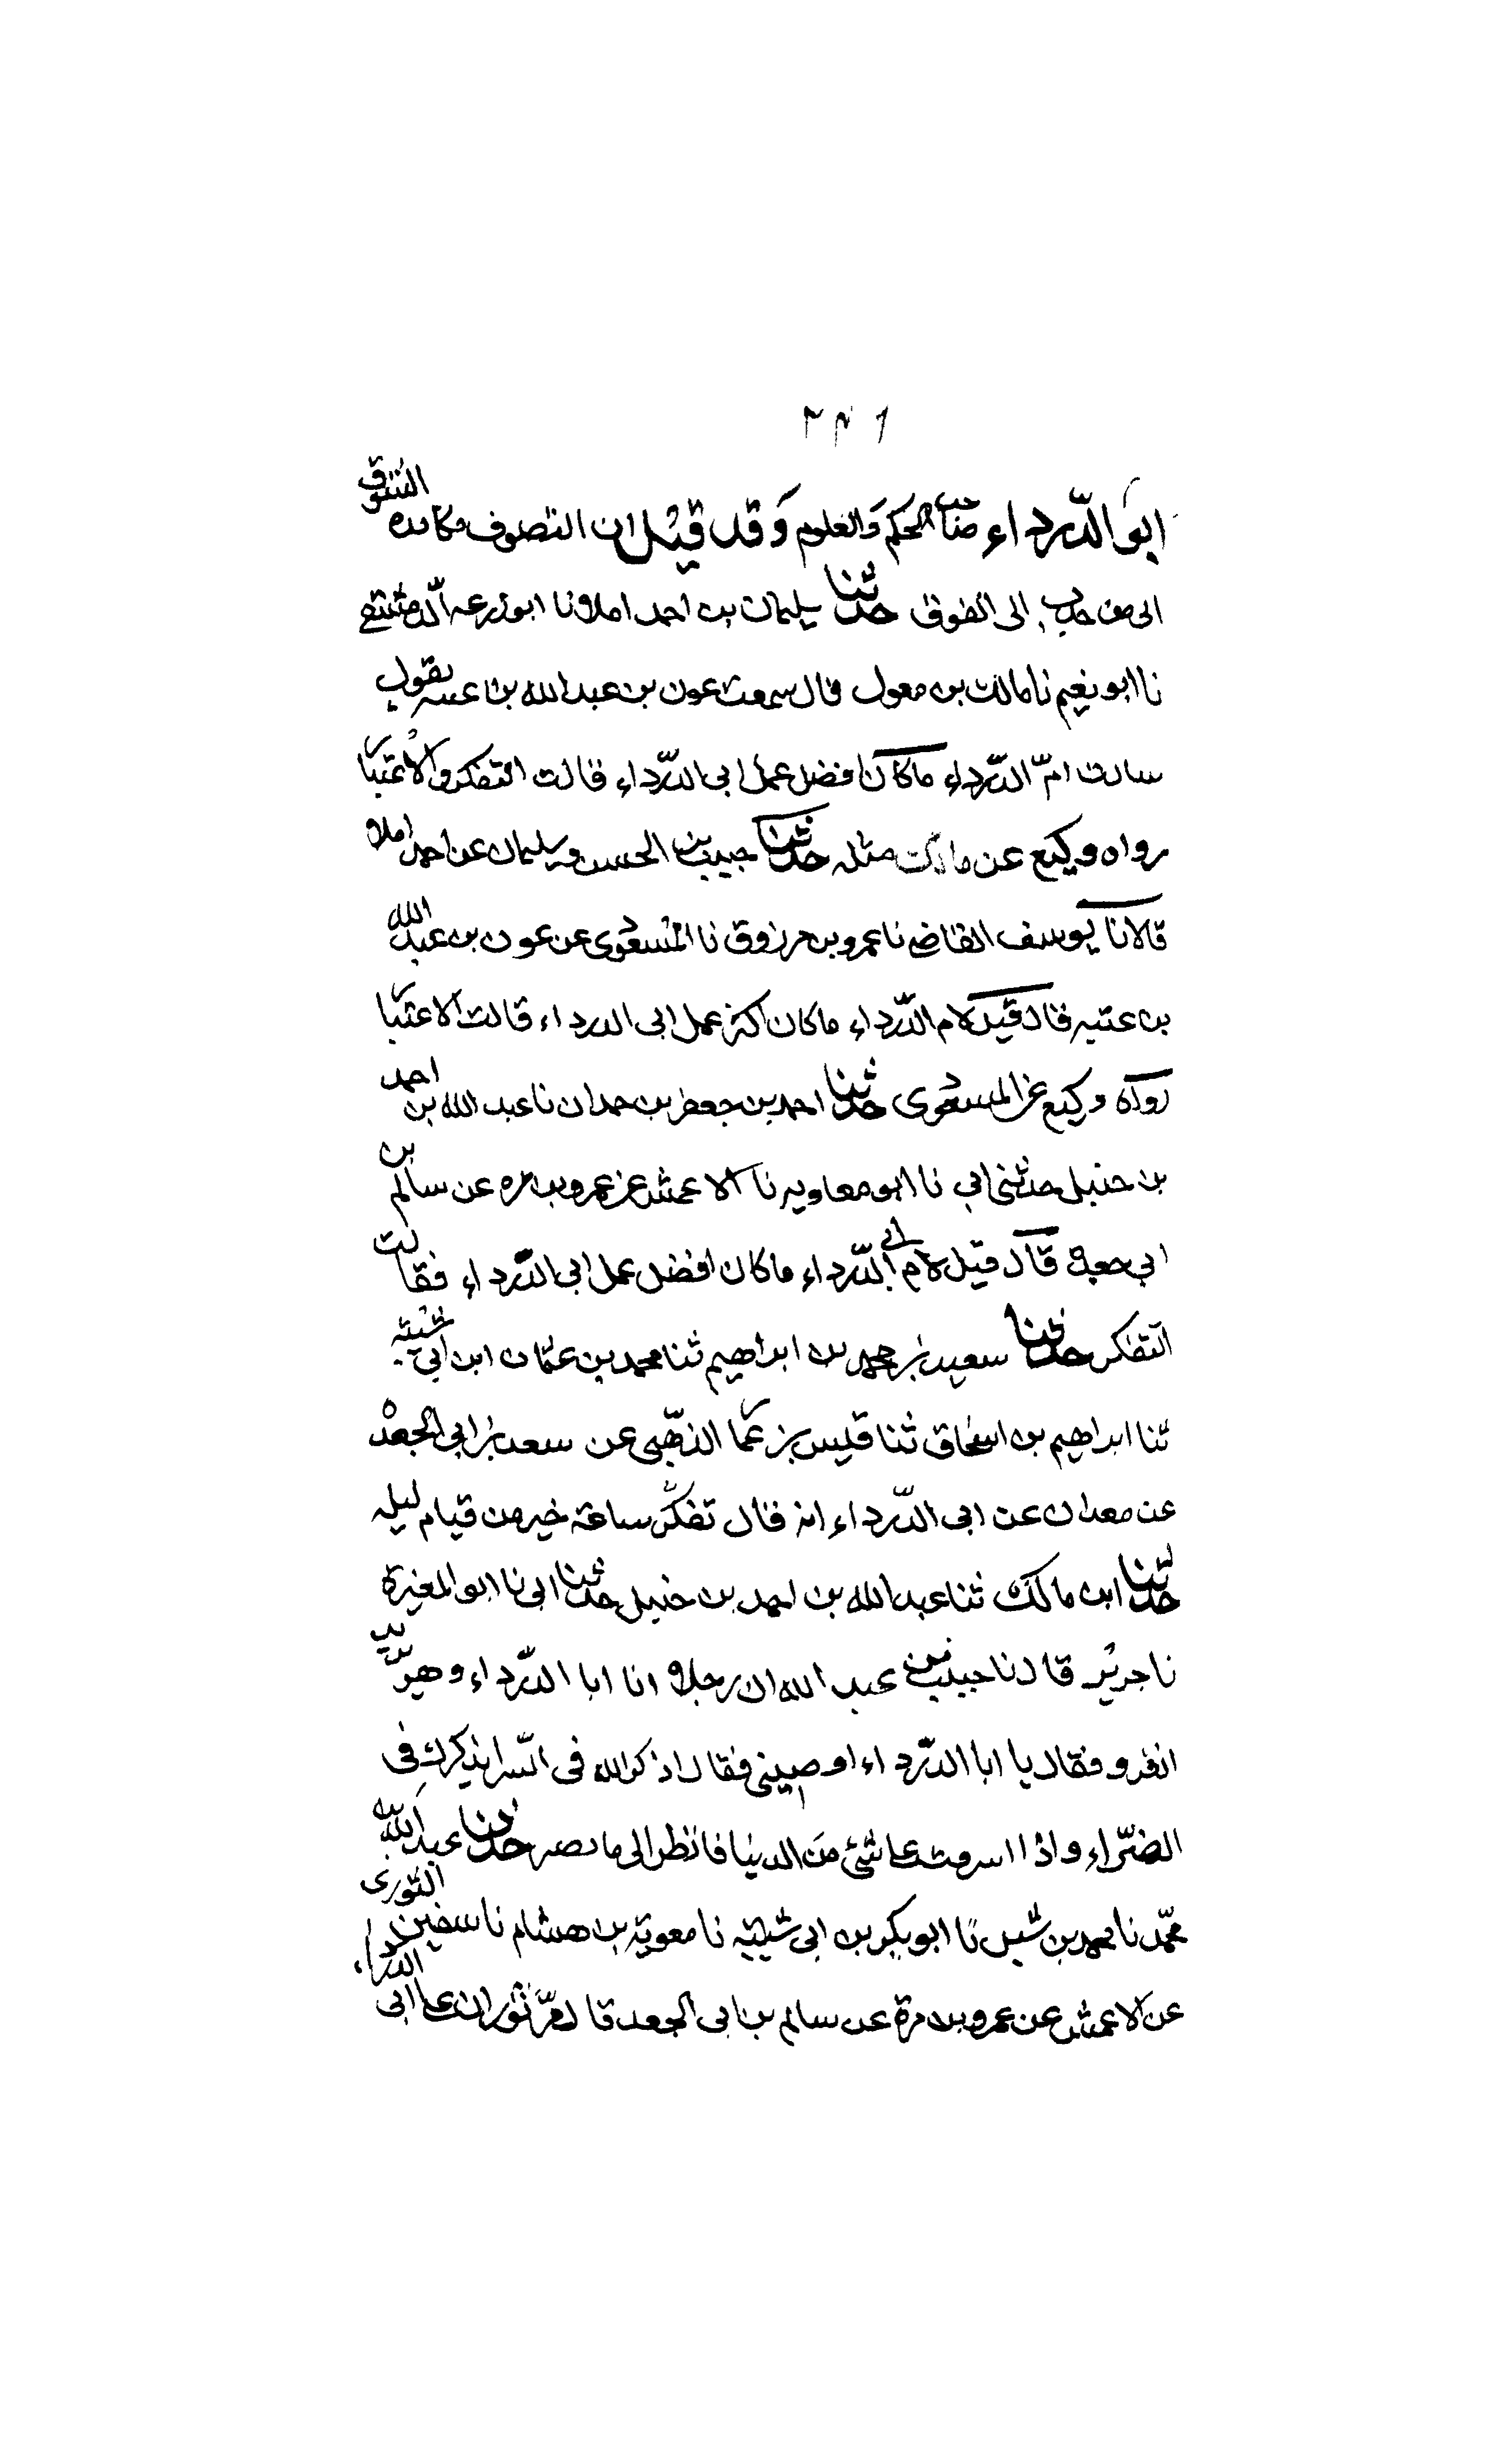 ابو الدرداء صاحب الحكم والعلوم وقد قيل ان التصوف مكابدة الشوق
الى من جذب الى الفوق حدثنا سليمان بن احمد املاء نا ابو زرعه الدمشقي
نا ابو نعيم نا مالك بن مغول قال سمعت عون بن عبد الله بن عتبه يقول
سالت ام الدرداء ما كان افضل عمل ابى الدرداء قالت التفكر والاعتبار
رواه وكيع عن مالك مثله حدثنا حبيب بن الحسن وسليمان عن احمد املاء
قالا نا يوسف القاضي نا عمرو بن مرزوق نا المسعودى عن عون بن عبد الله
بن عتبه قال قيل لام الدرداء ما كان اكثر عمل ابى الدرداء قالت الاعتبار
رواه وكيع عن المسعودى حدثنا احمد بن جعفر بن حمدان نا عبد الله بن احمد
بن حنبل حدثنى ابي نا ابو معاويه نا الاعمش عن عمرو بن مره عن سالم بن
ابي جعد قال قيل لام الدرداء ما كان افضل عمل ابى الدرداء فقالت
التفكر حدثنا سعيد بن محمد بن ابراهيم ثنا محمد بن عثمان ابن ابي شيبه
ثنا ابراهيم بن اسحاق ثنا قيس بن عمار الذهبى عن سعد بن ابى الجعد
عن معدان عن ابى الدرداء انه قال تفكر ساعة خير من قيام ليله
حدثنا ابن مالك ثنا عبد الله بن احمد بن حنبل حدثنا ابى نا ابو المغيرة
نا جرير قال نا حبيب بن عبد الله ان رجلا اتا ابا الدرداء وهو يريد
الغزو فقال يا ابا الدرداء اوصيني فقال اذكر الله فى السرا يذكرك فى
الضراء واذا اسرفت على شئ من الدنيا فانظر الى ما يصير حدثنا عبد الله
محمد نا محمد بن شبل نا ابو بكر بن ابى شيبه نا معوية بن هشام نا سفين الثورى
عن الاعمش عن عمرو بن مرة عن سالم بن ابى الجعد قال مر ثوران على ابى الدرداء